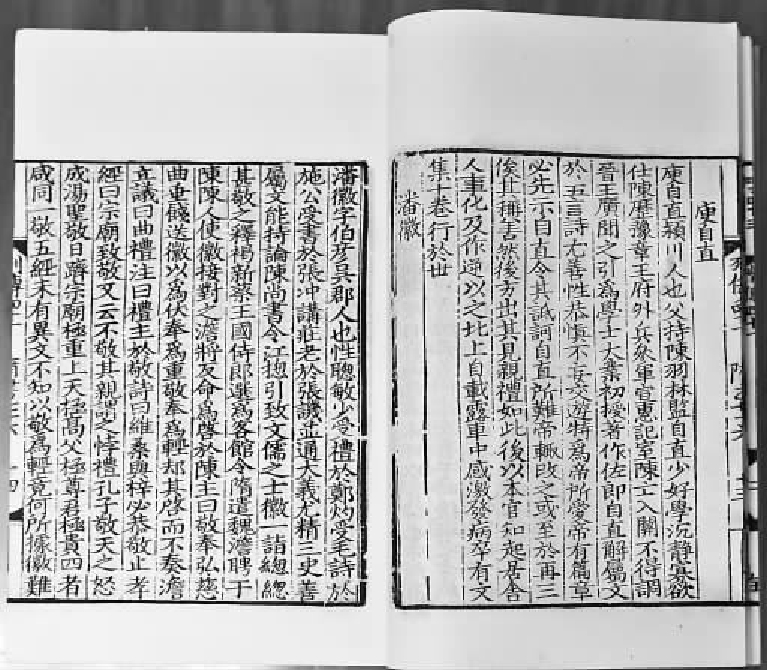 庾自直
庾自直潁川人也父持陳羽林監自直少好學沉靜寡欲
仕陳歷豫章王府外兵參軍宣惠記室陳亡入關不得調
晉王廣聞之引為學士大業初授著作佐郎自直解屬文
於五言詩尤善性恭慎不妄交遊特為帝所愛帝有篇章
必先示自直令其詆訶自直所難帝輒改之或至於再三
俟其稱善然後方出其見親禮如此後以本官知起居舍
人事化及作逆以之北上自載露車中感激發病卒有文
集十卷行於世
潘徽
潘徽字伯彥吳郡人也性聰敏少受禮於鄭灼受毛詩於
施公受書於張沖講莊老於張譏並通大義尤精三史善
屬文能持論陳尚書令江總引致文儒之士徽一詣總總
甚敬之釋褐新蔡王國侍郎選為客館令隋遣魏澹聘于
陳陳人使徽接對之澹將反命為啓於陳主曰敬奉弘慈
曲垂餞送徽以為伏奉為重敬奉為輕却其啓而不奏澹
立議曰曲禮注曰禮主於敬詩曰維桑與梓必恭敬止孝
經曰宗廟致敬又云不敬其親謂之悖禮孔子敬天之怒
成湯聖敬日躋宗廟極重上天極高父極尊君極貴四者
咸同一敬五經未有異文不知以敬為輕竟何所據徽難